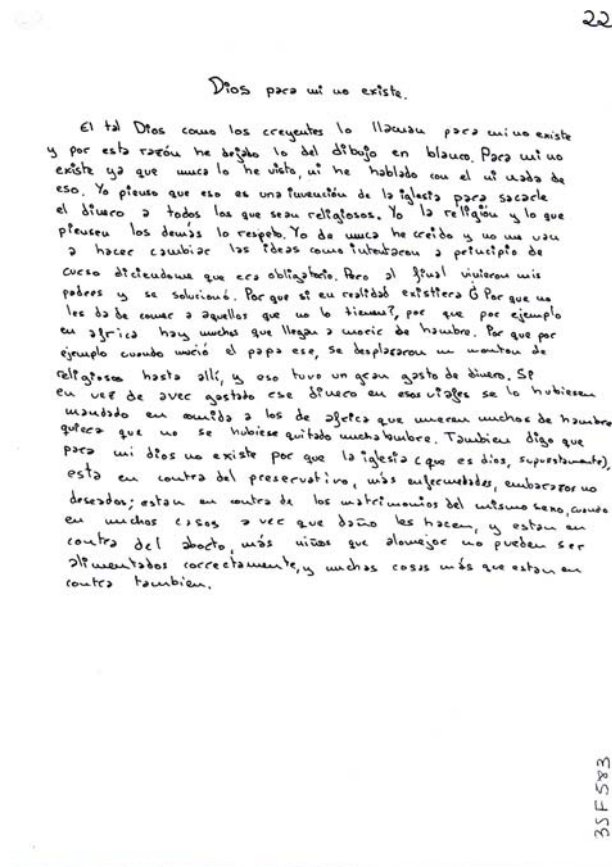 22
Dios para mi no existe.
El tal Dios como los creyentes lo llaman para mi no existe
y por esta razón he dejabo lo del dibujo en blanco. Para mi no
existe ya que nunca lo he visto, ni he hablado con el ni nada de
eso. Yo pienso que eso es una invención de la iglesia para sacarle
el dinero a todos los que sean religiosos. Yo la religión y lo que
piensen los demás lo respeto. Yo de nunca he creido y no me van
a hacer cambiar las ideas como intentaron a principio de
curso diciendome que era obligatorio. Pero al final vinieron mis
padres y se solucionó. Por que si en realidad existiera ¿Por que no
les da de comer a aquellos que no lo tienen?, por que por ejemplo
en africa hay muchos que llegan a morir de hambre. Por que por
ejemplo cuando murió el papa ese, se desplazaron un monton de
religiosos hasta allí, y eso tuvo un gran gasto de dinero. Si
en vez de aver gastado ese dinero en esos viajes se lo hubiesen
mandado en comida a los de africa que mueren muchos de hambre
quiera que no se hubiese quitado mucha hambre. Tambien digo que
para mi dios no existe por que la iglesia (que es dios, supuestamente),
esta en contra del preservativo, más enfermedades, embarazos no
deseados; estan en contra de los matrimonios del mismo sexo, cuando
en muchos casos a ver que daño les hacen, y estan en
contra del aborto, más niños que alomejor no pueden ser
alimentados correctamente, y muchas cosas más que estan en
contra tambien.
3SF583